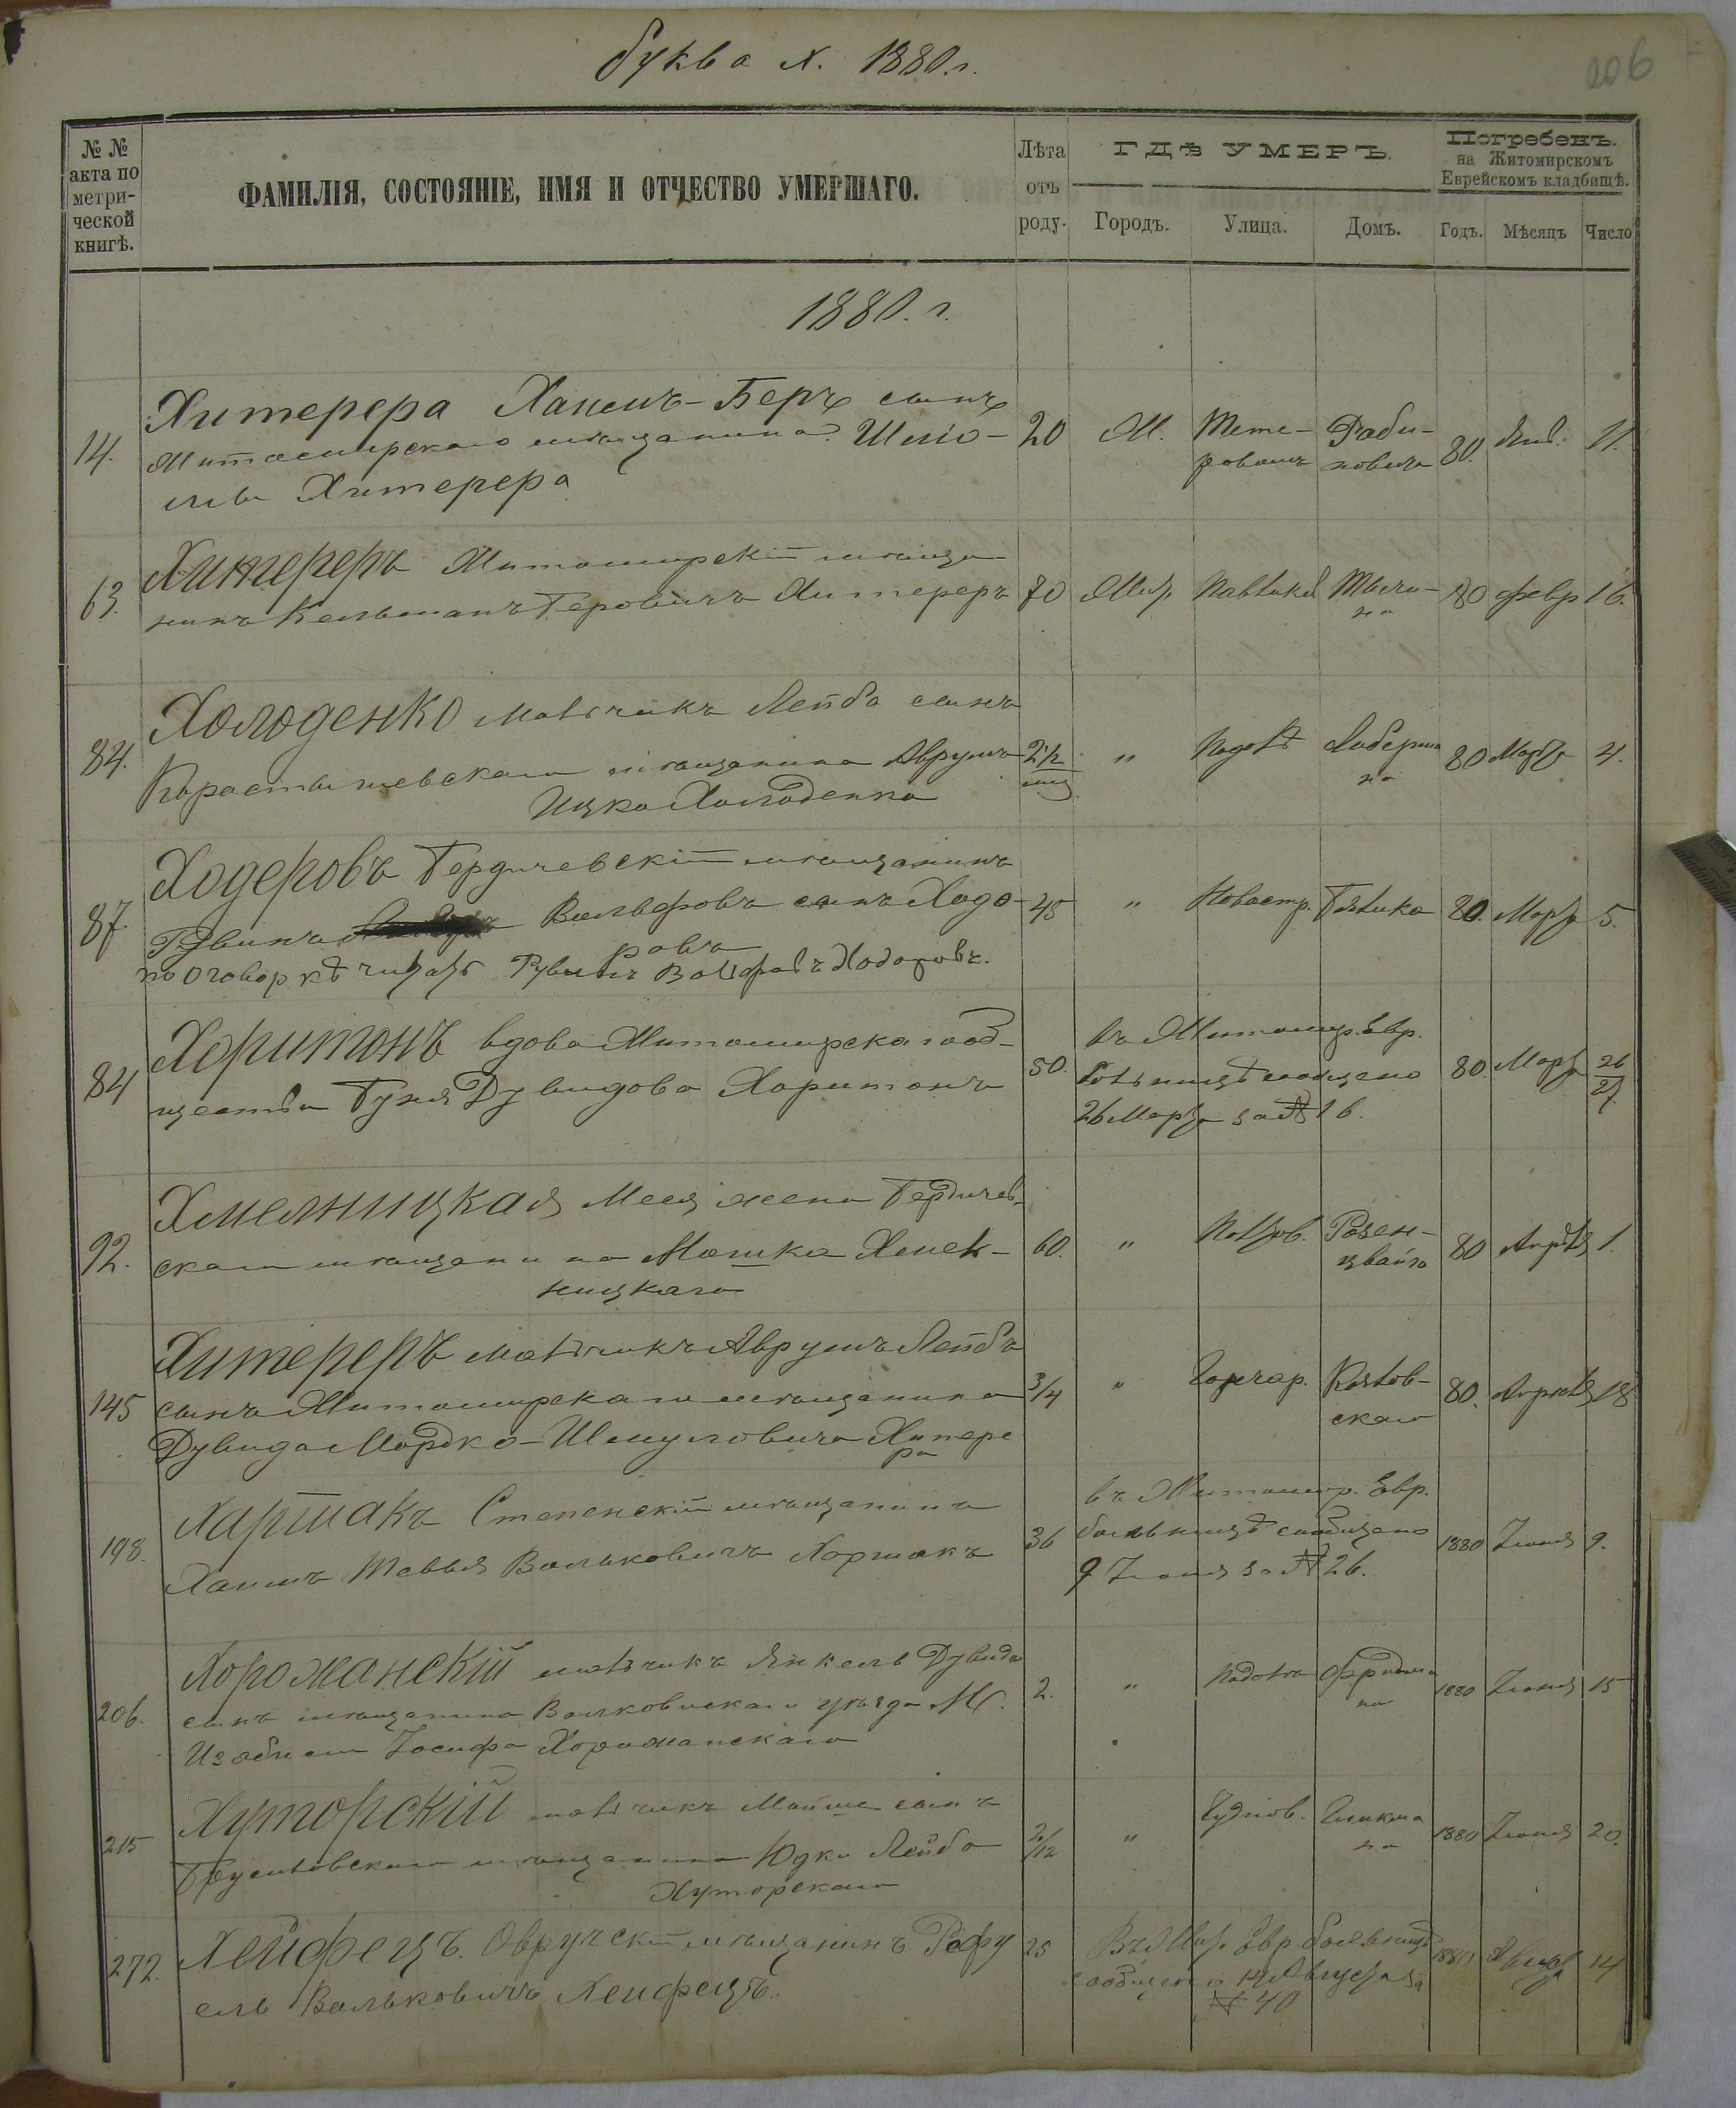 буква Х. 1880 г.
206
№ №
акта по
метри-
ческой
книгѣ.
ФАМИЛІЯ, СОСТОЯНІЕ, ИМЯ И ОТЧЕСТВО УМЕРШАГО.
Лѣта
отъ
роду.
ГДѢ УМЕРЪ.
Городъ. Улица. Домъ.
Погребенъ.
на Житомирскомъ
Еврейскомъ кладбищѣ.
Годъ. Мѣсяцъ Число
1880. г.
14.
Хитерера Хаимъ-Беръ сынъ
Житомирскаго мѣщанина Шмiо-
Хитерера
20 Ж. Тете- Раби-
новича 80. Янв. 11.
63.
Хитереръ Житомирскій мѣща-
нинъ Кельманъ Беровичъ Хитереръ
70 Жит.
80 февр 16.
84.
Холоденко мальчикъ Лейба сынъ
Коростышевскаго мѣщанина Аврумъ
Ицка Холоденко
2 1/2
" Подолѣ Либерма
на 80 Март 4.
87.
Ходеровъ Бердичевскій мѣщанинъ
Рувинъ Вольфовъ сынъ Ходо-
ровъ
по оговоркѣ читать Рувинъ Вольфовъ Ходоровъ.
45 " Новостр. 80. Март 5.
84
Харитонъ вдова Житомирскаго об-
щества Буня Дувидова Харитонъ
50.
въ Житомир. Евр.
больницѣ сообщено
26 Марта за № 16.
80. Март 26
27.
92.
Хмелницкая жена Бердичев-
скаго мѣщанина Мошка Хмель-
ницкаго
60. " Розен-
цвайга 80 Апрѣля 1.
145
Хитереръ мальчикъ Аврумъ Лейбъ
сынъ Житомирскаго мѣщанина
Дувида Мордко-Шмуловича Хитере
ра
3/4 " Гончар. Козлов-
скаго 80. Апрѣля 18
198.
Харшакъ Степенскій мѣщанинъ
Хаимъ Тевья Вольковичъ Харшакъ
36
въ Житомир. Евр.
больницѣ сообщено
9 Іюня за № 26.
1880 Іюня 9.
206.
Хорожанскій мальчикъ Янкель Дувидъ
сынъ мѣщанина Волковискаго уѣзда М.
Іосифа Хорожанскаго
2. " Подолъ Фридма
на 1880 Іюня 15
215
Хуторскій мальчикъ Мойше сынъ
Брусиловскаго мѣщанина Юдки Лейба
Хуторскаго
2/12 " Чуднов. Гликма
на 1880 Іюня 20.
272.
Хейфецъ. Овручскій мѣщанинъ Рафу
елъ Вольковичъ Хейфецъ.
25
Въ Жит. Евр. больницѣ
сообщено 14 Августа за
№ 40
1880 Август 14